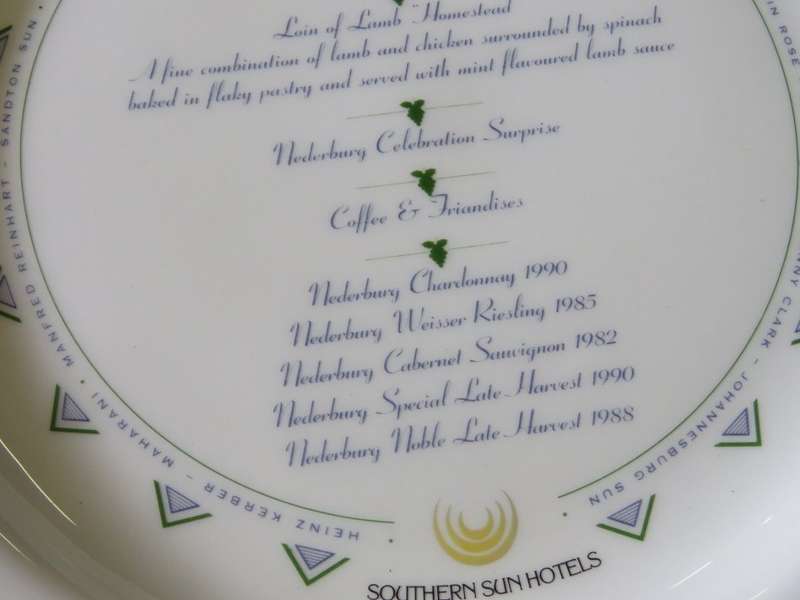 Loin of Lamb "Homestead
A fine combination of lamb and chicken surrounded by spinach
baked in flaky pastry and served with mint flavoured lamb sauce
Nederburg Celebration Surprise
Coffee & Friandises
Nederburg Chardonnay 1990
Nederburg Weisser Riesling 1985
Nederburg Cabernet Sauvignon 1982
Nederburg Special Late Harvest 1990
Nederburg Noble Late Harvest 1988
HEINZ KERBER - MAHARANI • MANFRED REINHART - SANDTON SUN •
CLARK - JOHANNESBURG SUN •
ROSE
SOUTHERN SUN HOTELS